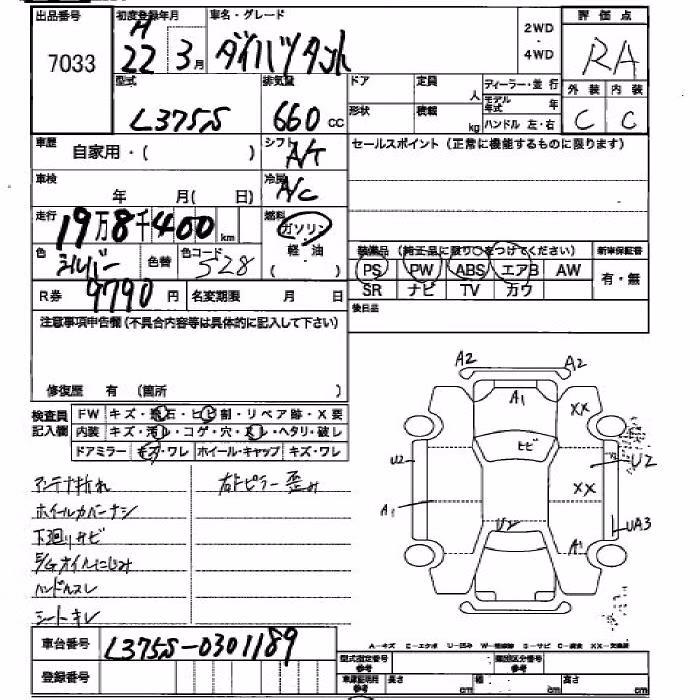 出品番号
7033
初度登録年月
H
22年 3月
車名・グレード
ダイハツタント
2WD
・
4WD
評価点
RA
外装 内装
C C
型式
L375S
排気量
660 cc
ドア 定員 人
形状 積載 kg
ディーラー・並行
モデル年式 年
ハンドル 左・右
車歴
自家用・( )
シフト
A/T
セールスポイント(正常に機能するものに限ります)
車検
年 月( 日)
冷房
A/C
走行
19万8千400km
燃料
ガソリン
軽・油
( )
色
シルバー
色替
色コード
S28
装備品(純正品に限り○をつけてください)
新車保証書
PS PW ABS エアB AW
有・無
SR ナビ TV カワ
R券 9790円
名変期限 月 日
後日品
注意事項申告欄(不具合内容等は具体的に記入して下さい)
修復歴 有 (箇所 )
検査員
記入欄
FW キズ・飛石・ヒビ割・リペア跡・X要
内装 キズ・汚れ・コゲ・穴・スレ・ヘタリ・破し
ドアミラー キズ・ワレ ホイール・キャップ キズ・ワレ
アンテナ折れ
右ドピラー歪み
ホイールカバーナシ
下廻りサビ
E/Gオイルにじみ
ハンドルスレ
シートキレ
A2
A2
A1
XX
ヒビ
U2
U2
XX
A1
U2
UA3
A1
車台番号
L375S-0301189
登録番号
A-キズ E-エクボ U-凹み S-サビ C-腐食 XX-交換済
型式指定番号
参考
類別区分番号
参考
車庫証明用
参考
長さ cm
幅 cm
高さ cm